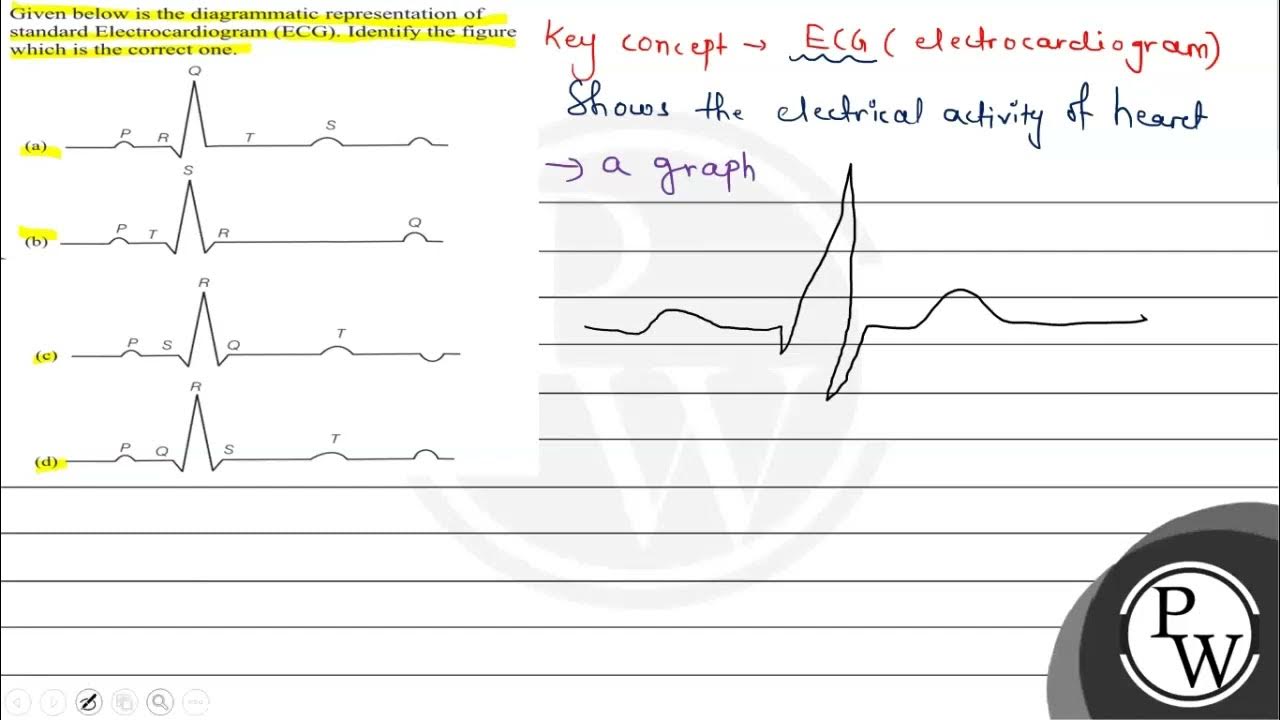 Given below is the diagrammatic representation of
standard Electrocardiogram (ECG). Identify the figure
which is the correct one.
Q
(a) P R T S
S
(b) P T R Q
R
(c) P S Q T
R
(d) P Q S T
Key concept → ECG ( electrocardiogram)
Shows the electrical activity of hearct
→ a graph
P
W
P
W